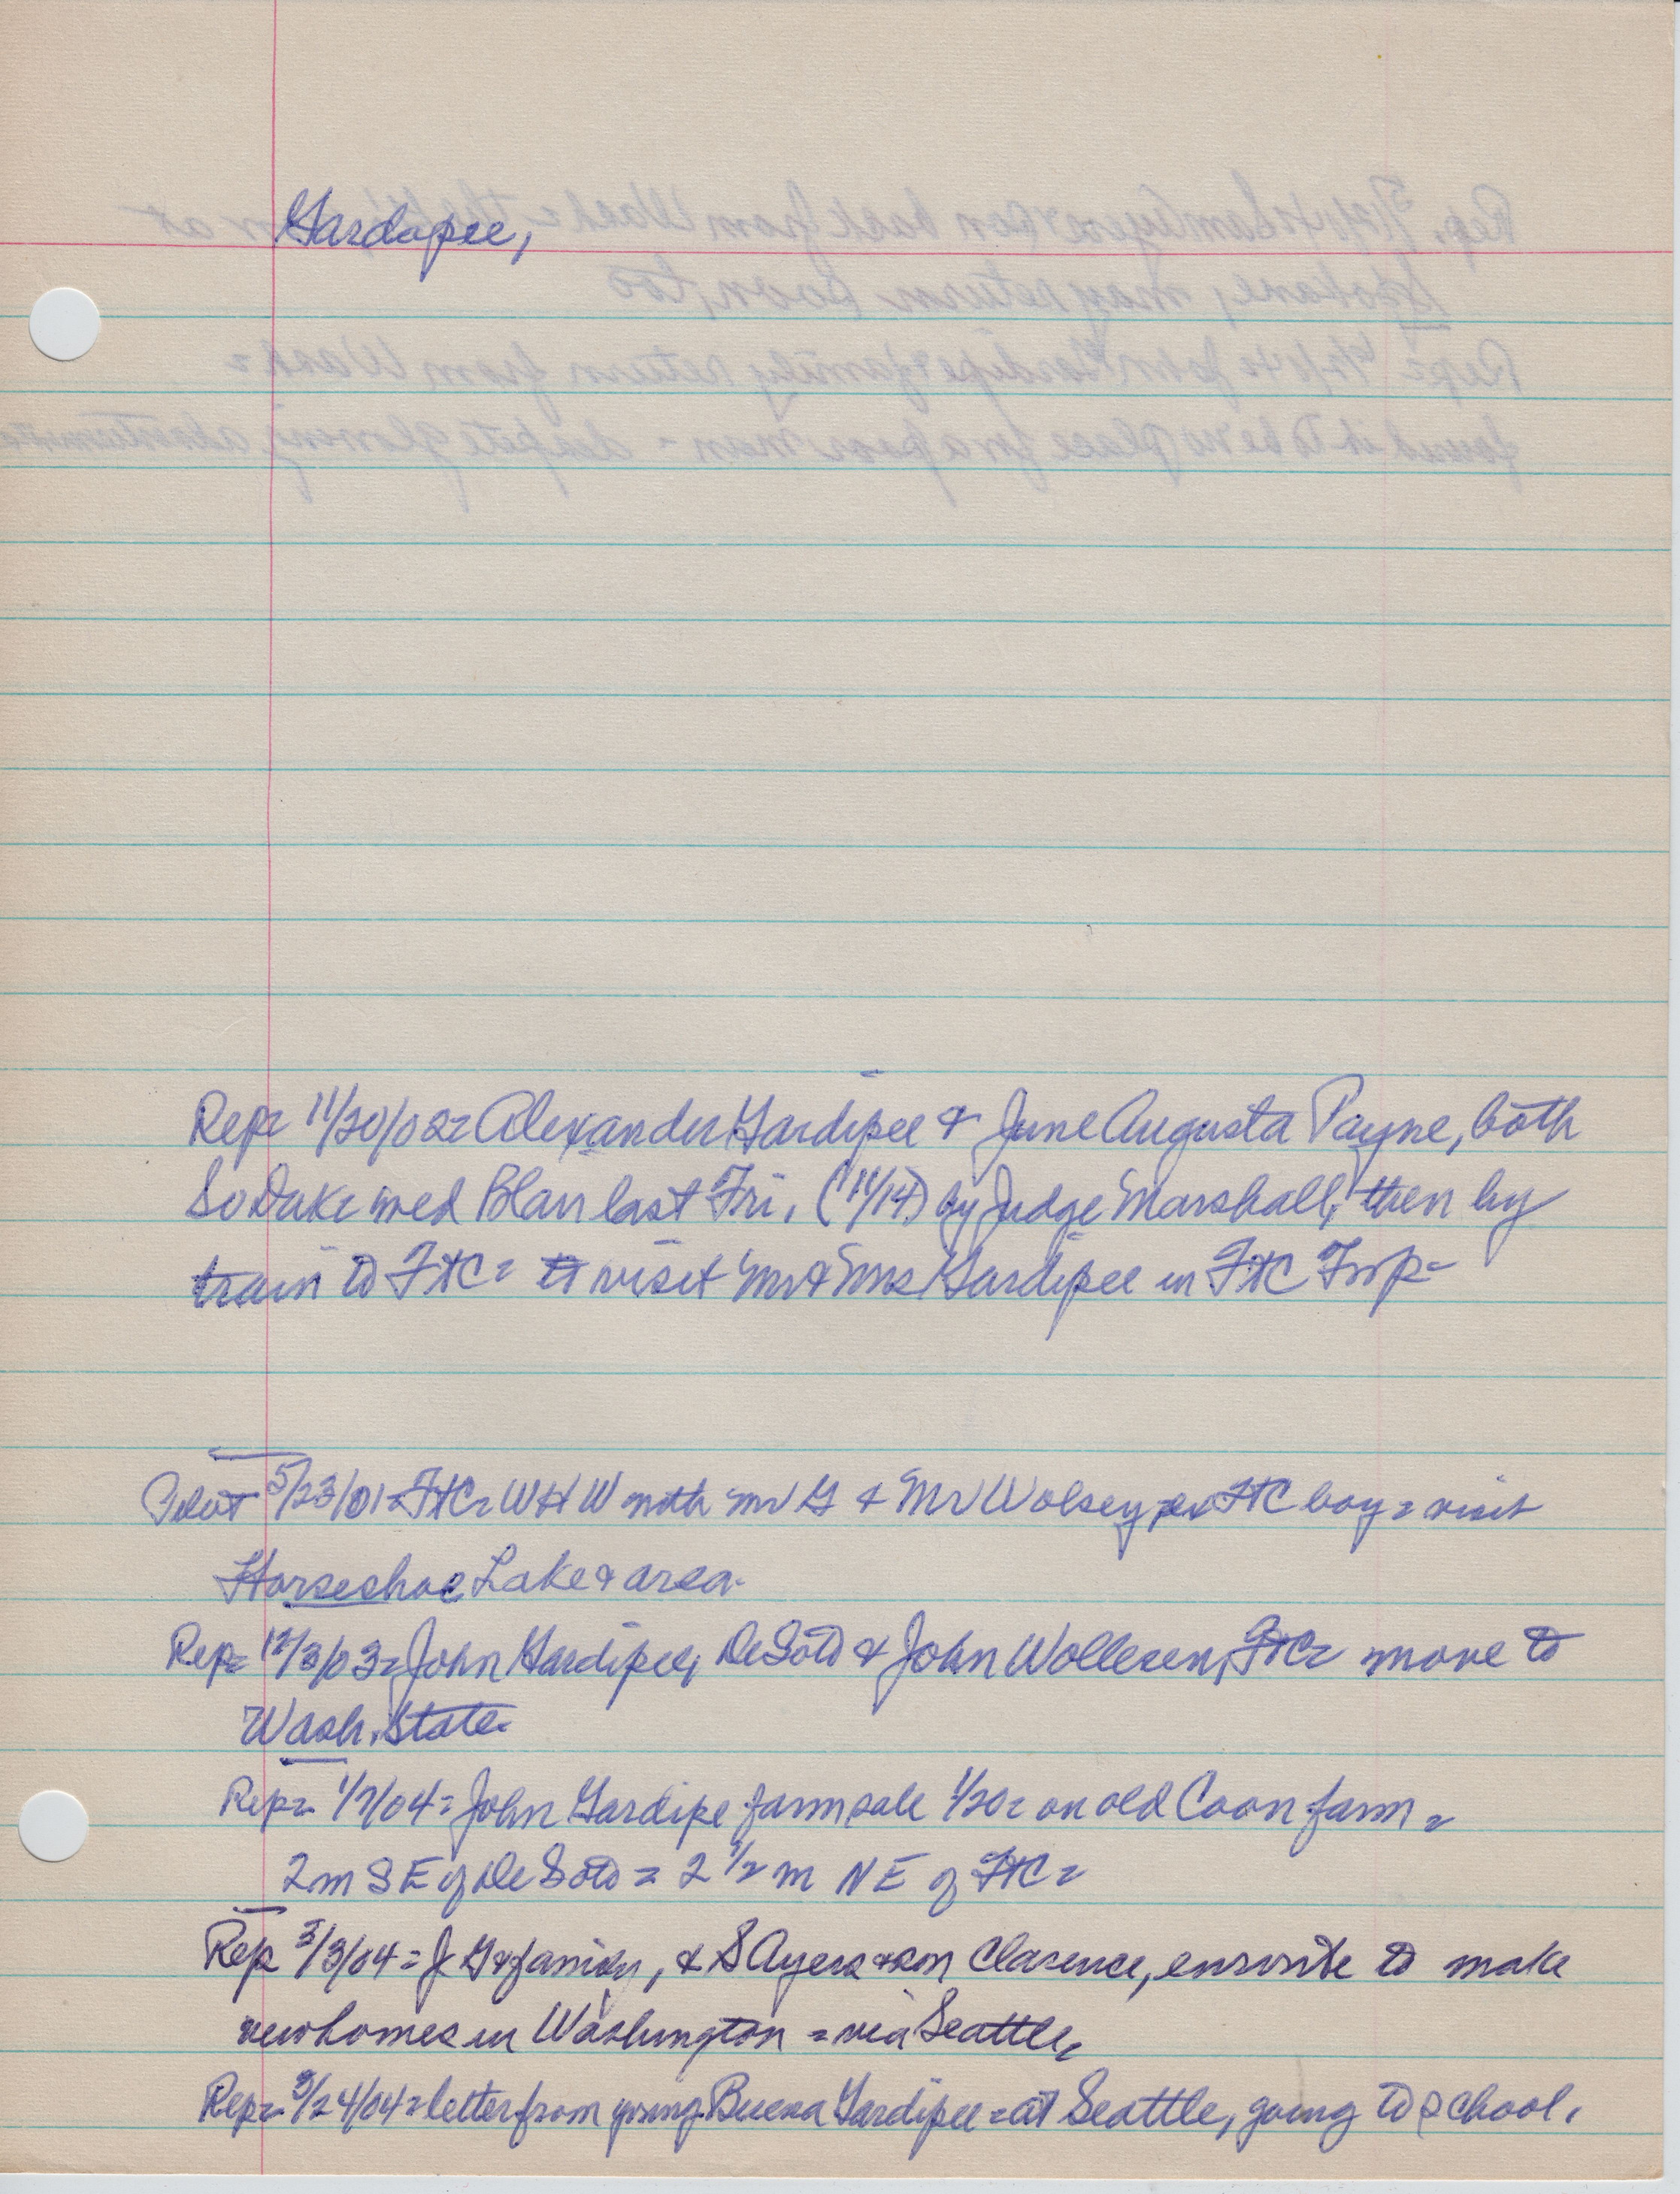 Gardipee,
Rep= 11/20/02= Alexander Gardipee & June Augusta Payne, both
So Dak= wed Blair last Fri. (11/14) by Judge Marshall, then by
train to FtC= to visit Mr & Mrs Gardipee in FtC Twp=
Pilot 5/23/01= FtC= W H W with Mr G & Mr Wolsey, ex FtC boy= visit
Horseshoe Lake & area.
Rep= 12/3/03= John Gardipee, DeSoto & John Wollesen, FtC= move to
Wash. State.
Rep= 1/7/04= John Gardipe farm sale 1/20= on old Coon farm=
2m SE of De Soto = 2 1/2 m NE of FtC=
Rep 3/3/04= J G & family, & S Ayers & son Clarence, enroute to make
new homes in Washington = via Seattle,
Rep= /24/04= letter from young Buena Gardipee= at Seattle, going to school.